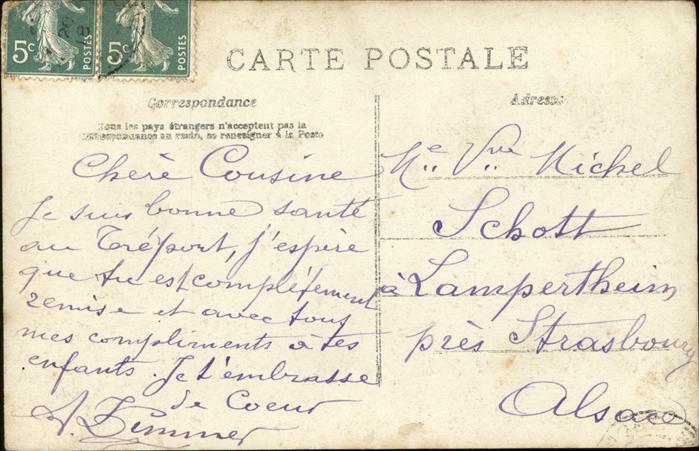 5c POSTES 5c POSTES
CARTE POSTALE
Correspondance
Tous les pays étrangers n'acceptent pas la
correspondance au recto, se renseigner à la Poste
Chère Cousine
Je suis bonne santé
au Tréport, j'espère
que tu est complétement
remise et avec tous
mes compliments à tes
enfants. Je t'embrasse
de Coeur
A. Zimmer
Adresse
Me Vve Michel
Schott
à Lampertheim
près Strasbourg
Alsace